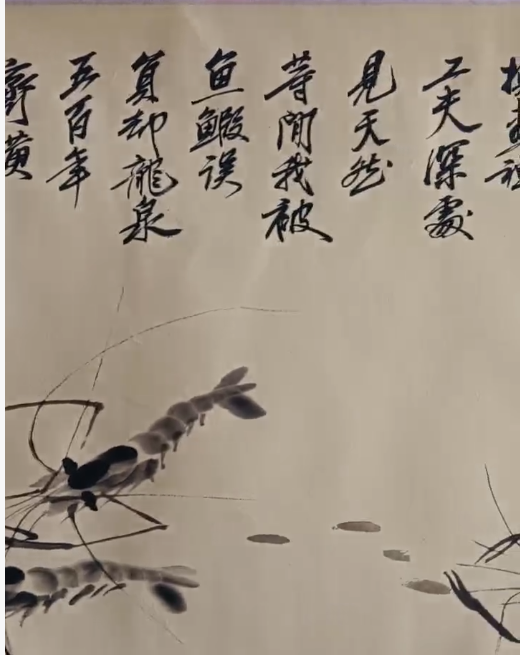 工夫深處
見天然
等閒我被
鱼鰕误
負却龍泉
五百年